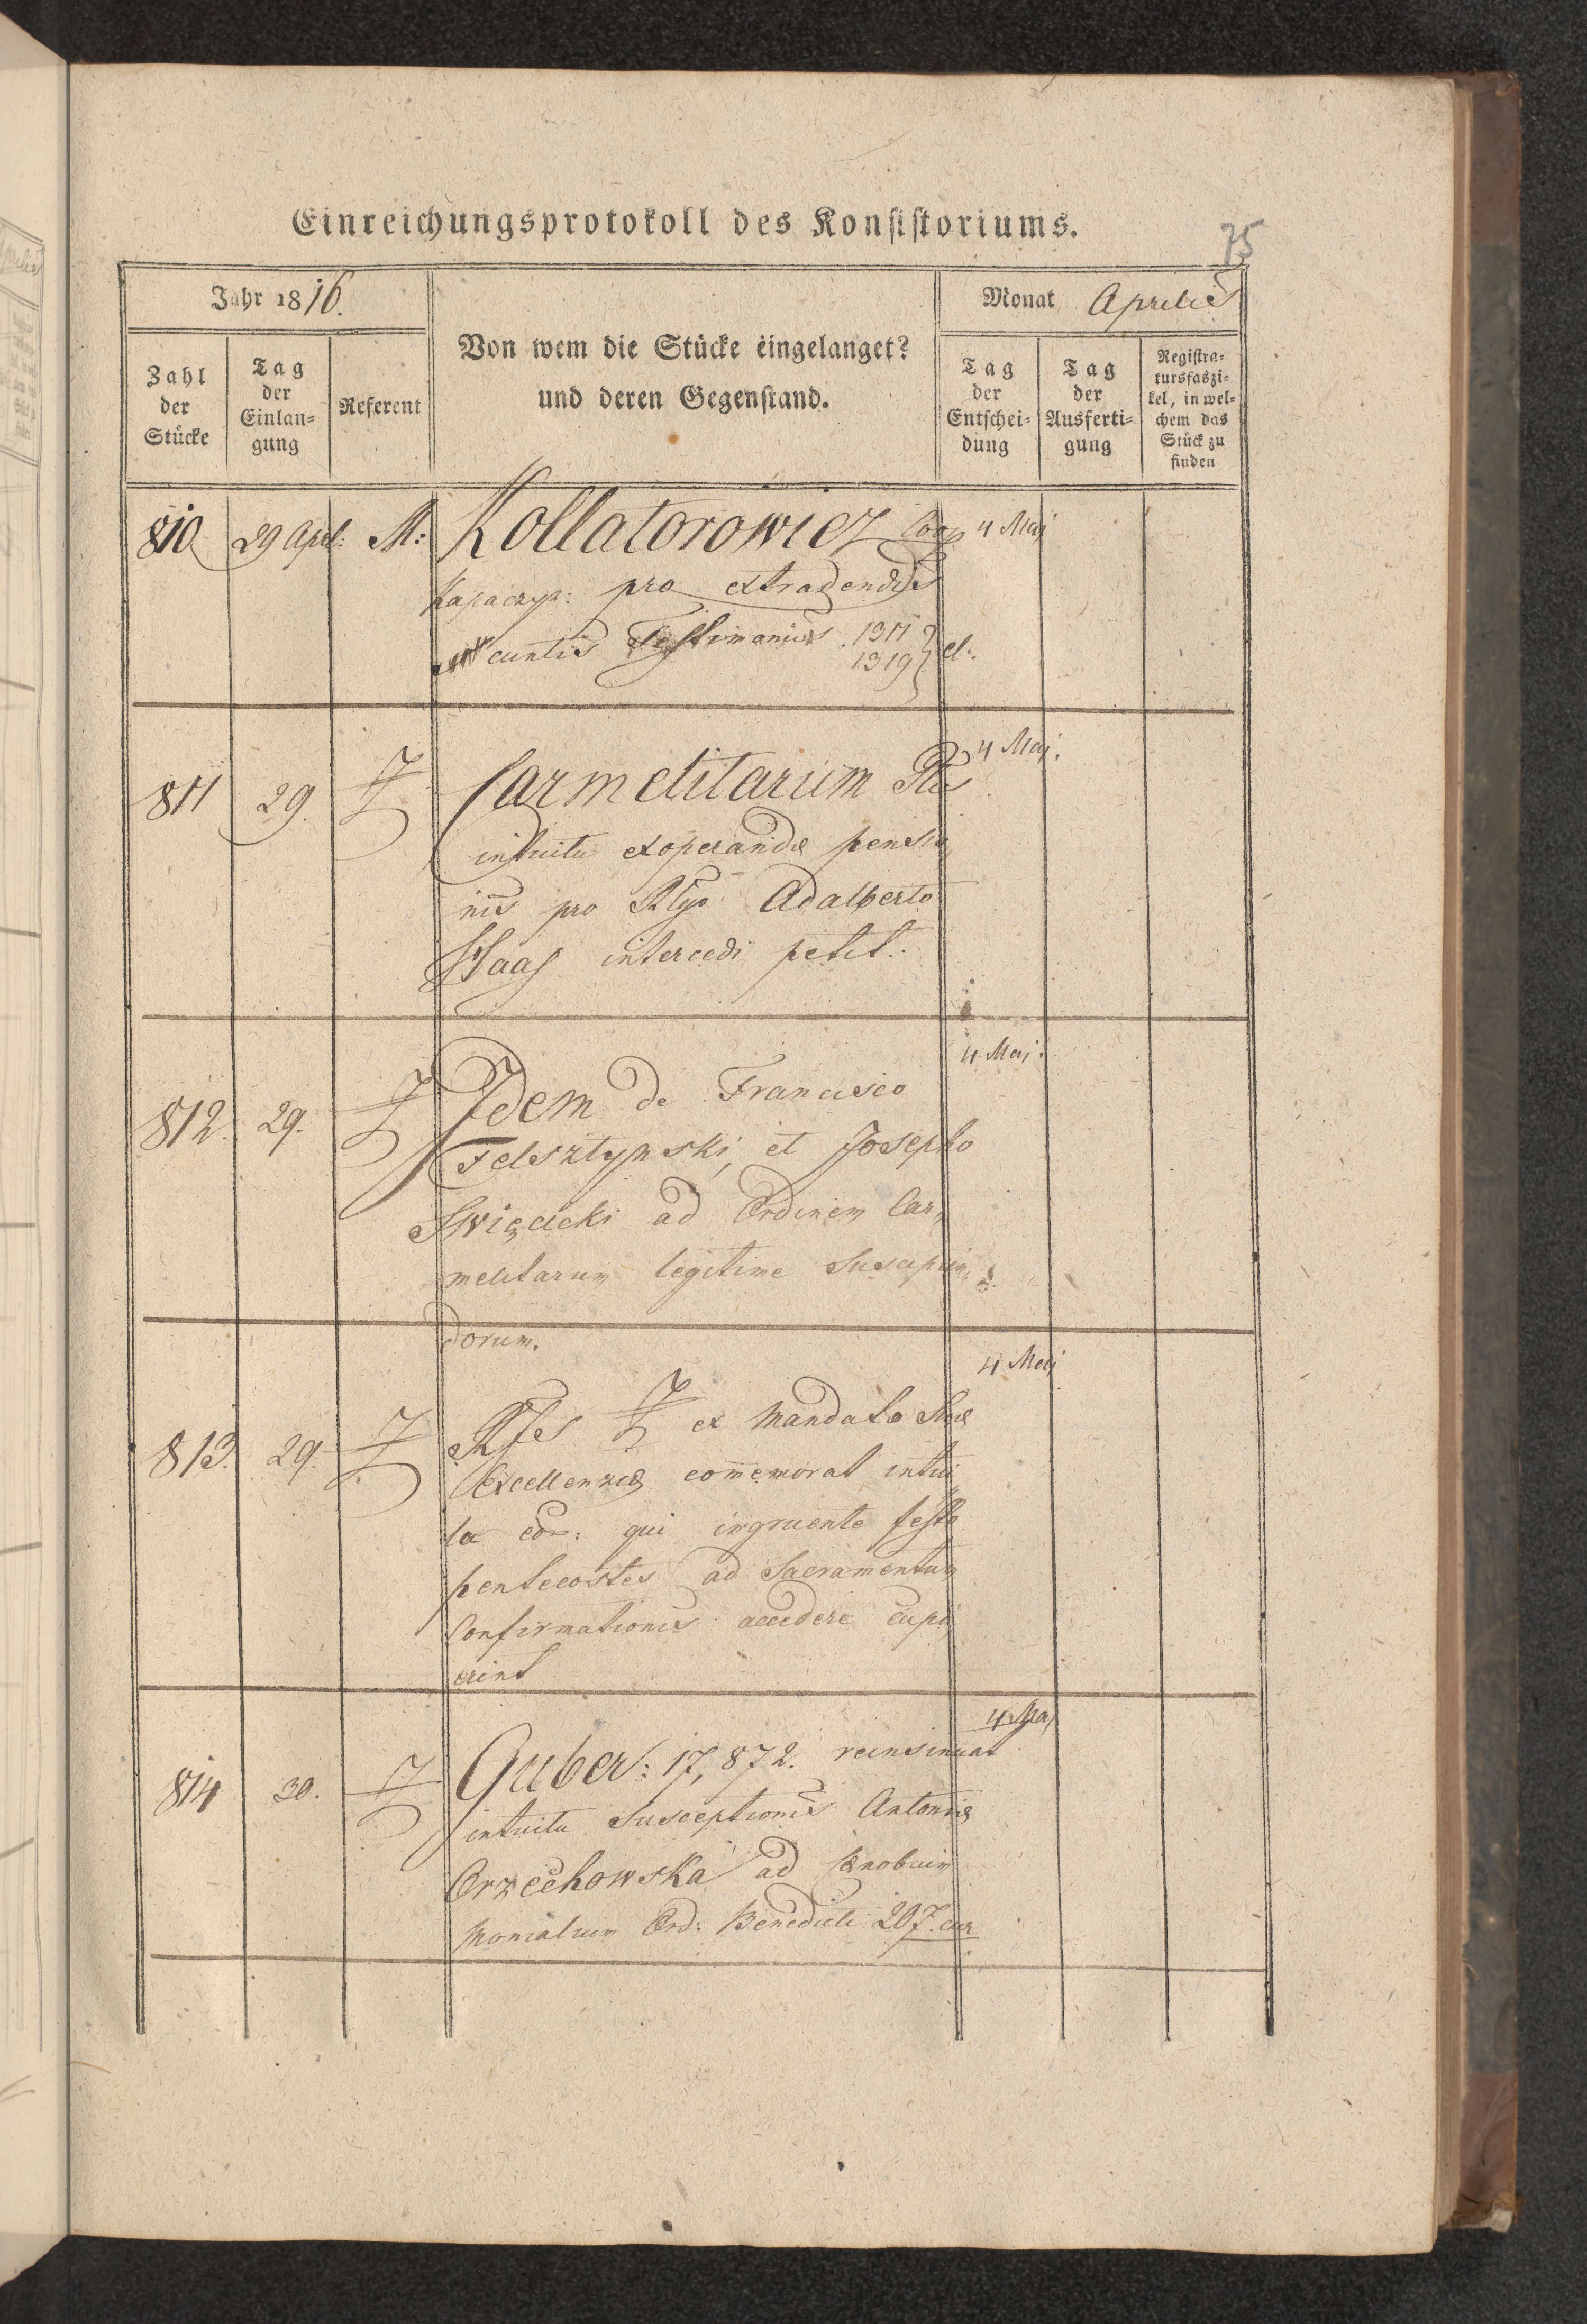 Einreichungsprotokoll des Konsistoriums.
75
Jahr 1816.
Von wem die Stücke eingelanget?
und deren Gegenstand.
Monat Aprilis
Zahl der Stücke
Tag der Einlan=gung
Referent
Tag der Entschei=dung
Tag der Ausferti=gung
Registra=tursfaszi=kel, in wel=chem das Stück zu finden
810 29 Apl: M: Kollatorowicz Coop 4 Maj
Kapaczyn: pro extradendis
cuntis Testimoniis 1311
1319 } el:
811 29. Carmelitarum 4 Maj.
intuitu exoperandæ pensio
nis pro Adalberto
Haas intercedi petit.
812. 29. Idem de Francisco 4 Maj.
Felsztynski et Josepho
Swięcicki ad Ordinem Car,
melitarum legitime suscipien,
dorum.
813. 29. ex mandato Suæ 4 Maj
Excellenziæ commemorat intui
ta eor: qui ingruente festo
pentecostes ad Sacramentum
Confirmationis accedere cupi
erint
814 30. Guber: 17,872. reinsinuat 4 Maj
intuitu susceptionis Antoniæ
Orzechowska ad Cænobium
Monialium Ord: Benedicti 207. cur